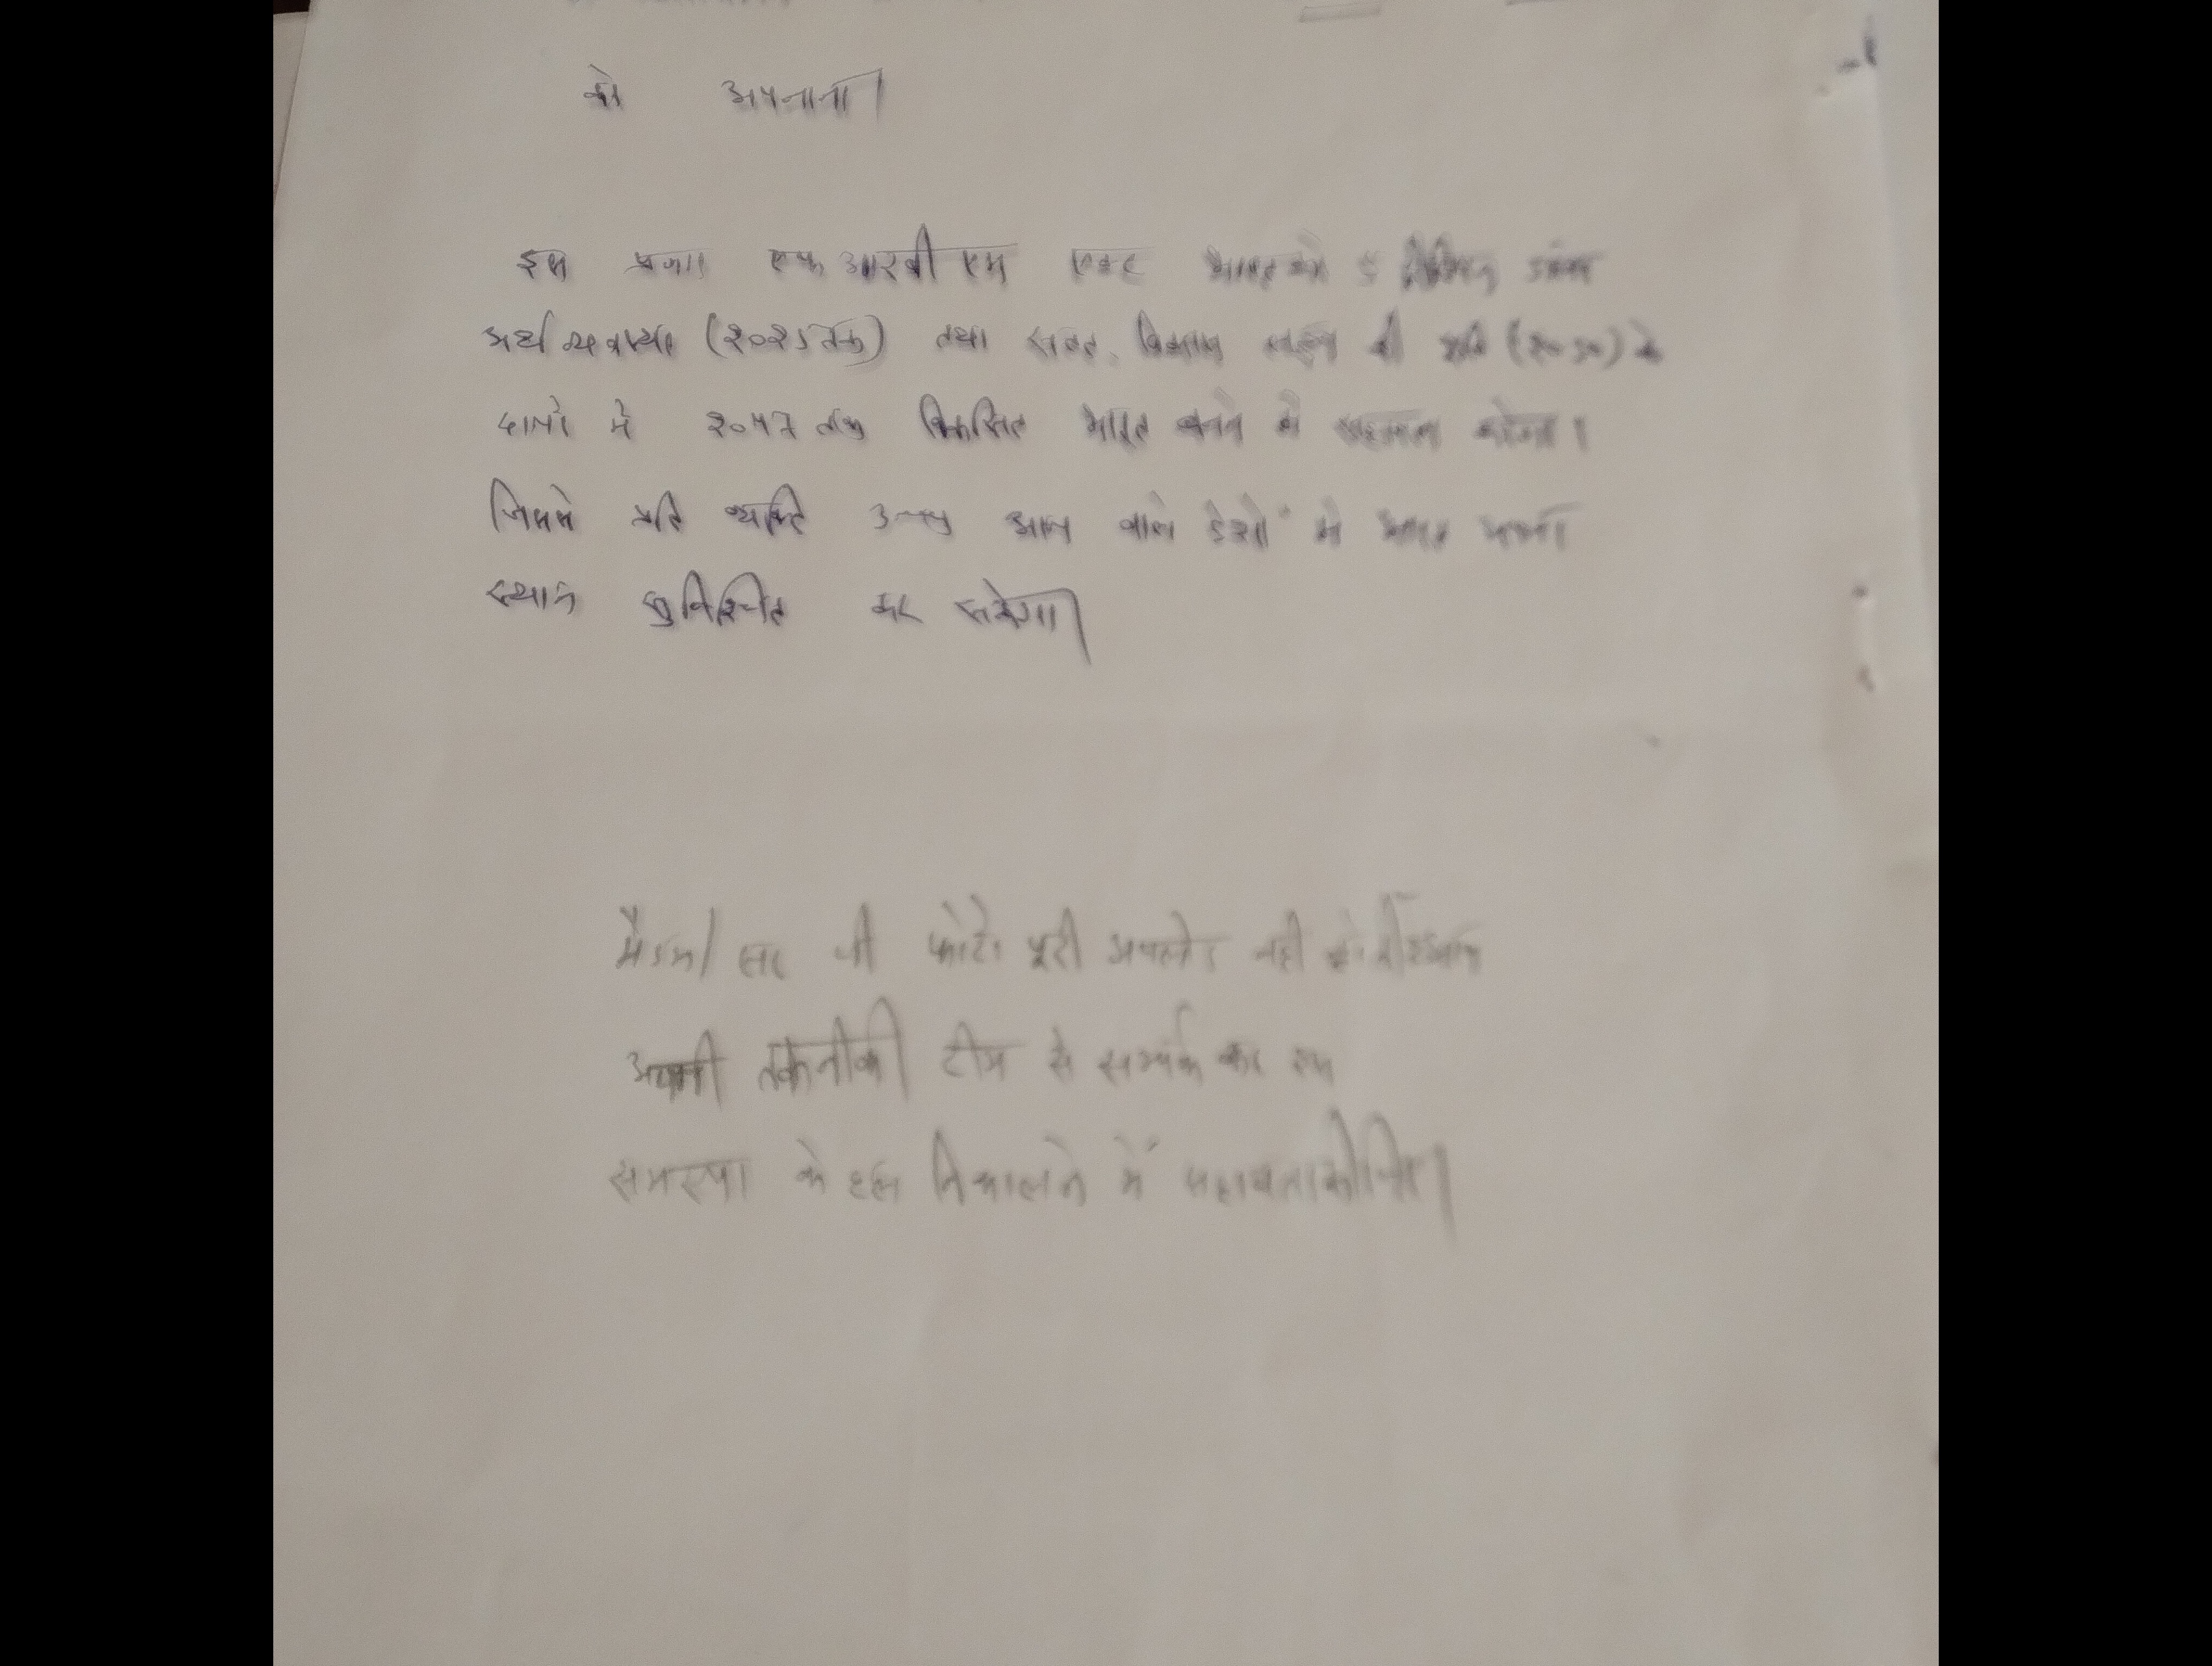 को अपनाना।
इस प्रकार एफ आर बी एम एक्ट भारत को ५ ट्रिलियन डॉलर
अर्थव्यवस्था (२०२५ तक) तथा सतत विकास लक्ष्य की प्राप्ति (२०३०) के
साथ में २०४७ तक विकसित भारत बनने में सहायता करेगा।
जिससे प्रति व्यक्ति उच्च आय वाले देशों में भारत अपना
स्थान सुनिश्चित कर सकेगा।
मैडम/सर जी फोटो पूरी अपलोड नही हो
अपनी तकनीकी टीम से सम्पर्क कर इस
समस्या के हल निकालने में सहायता कीजिए।